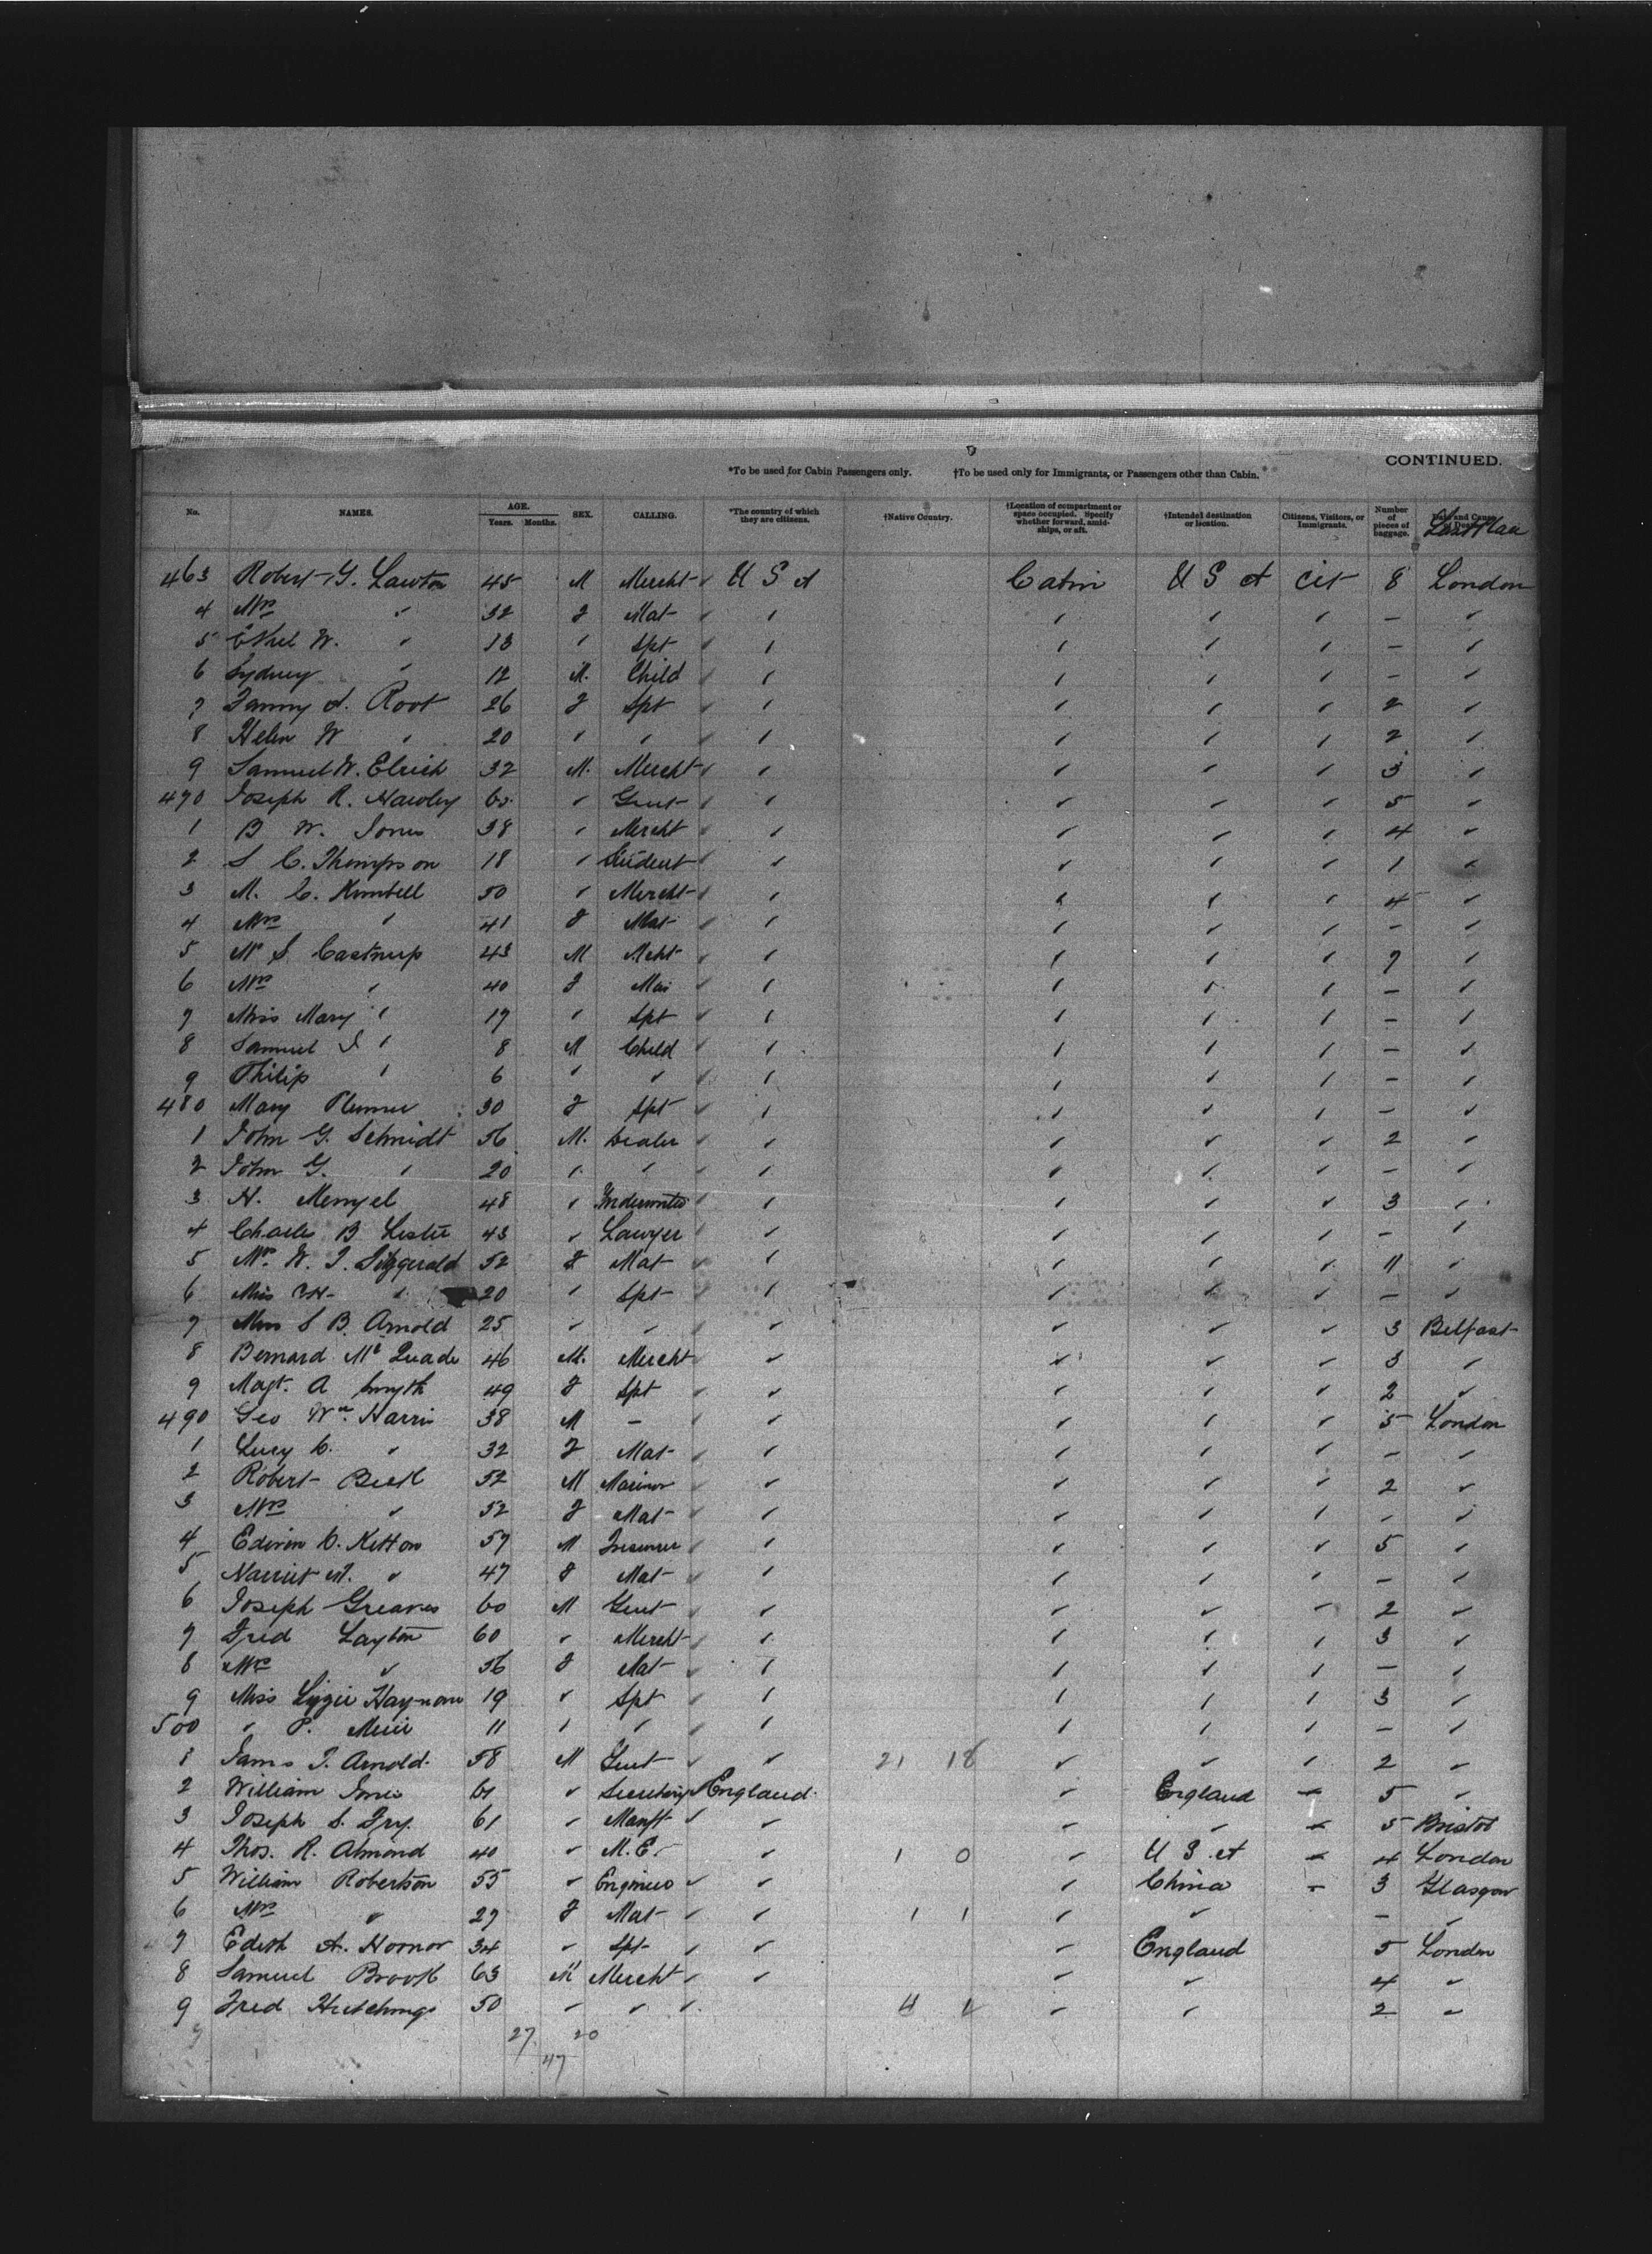 CONTINUED.
*To be used for Cabin Passengers only. †To be used only for Immigrants, or Passengers other than Cabin.
No. NAMES. AGE. Years. Months. SEX. CALLING. *The country of which they are citizens. †Native Country. †Location of compartment or space occupied. Specify whether forward, amidships, or aft. †Intended destination or location. Citizens, Visitors, or Immigrants. Number of pieces of baggage. Date and Cause of Death. Last Place
463 Robert G. Lawton 45 M Mercht ✓ U S A Cabin U S A Cit 8 London
4 Mrs " 32 F Mat ✓ " " " " — "
5 Ethel W. " 13 " Spt ✓ " " " " — "
6 Sydney " 12 M. Child ✓ " " " " — "
7 Fanny A. Root 26 F Spt ✓ " " " " 2 "
8 Helen W " 20 " " ✓ " " " " 2 "
9 Samuel W. 32 M. Mercht ✓ " " " " 3 "
470 Joseph R. Hawley " Gent ✓ " " " " 5 "
1 B W. Jones 38 " Mercht ✓ " " " " 4 "
2 S C. Thompson 18 " Student ✓ " " " " 1 "
3 M. C. Kimbell 50 " Mercht ✓ " " " " 4 "
4 Mrs " 41 F Mat ✓ " " " " — "
5 Mr S. 43 M Mcht ✓ " " " " 7 "
6 Mrs " 40 F " " " " — "
7 Miss Mary " 17 " Spt ✓ " " " " — "
8 Samuel " 8 M Child ✓ " " " " — "
9 Philip " 6 " " ✓ " " " " — "
480 Mary 30 F Spt ✓ " " " " — "
1 John G. Schmidt 56 M. Dealer ✓ " " " " 2 "
2 John G. " 20 " " ✓ " " " " — "
3 H. Mengel 48 " Underwriter ✓ " " " " 3 "
4 Charles B Lester 43 " Lawyer ✓ " " " " — "
5 Mrs W. J. Fitzgerald 52 F Mat ✓ " " " " 11 "
6 Miss " 20 " Spt ✓ " " " " — "
7 Miss S B. Arnold 25 " " ✓ " " " " 3 Belfast
8 Bernard McQuade 46 M. Mercht ✓ " " " " 3 "
9 Magt. A Smyth 49 F Spt ✓ " " " " 2 "
490 Geo Wm. Harris 38 M — ✓ " " " " 5 London
1 Lucy C. " 32 F Mat ✓ " " " " — "
2 Robert 52 M Mariner ✓ " " " " 2 "
3 Mrs " 52 F Mat ✓ " " " " — "
4 Edwin C. 57 M " " " " 5 "
5 Harriet M. " 47 F Mat ✓ " " " " — "
6 Joseph Greaves 60 M Gent ✓ " " " " 2 "
7 Fred Layton 60 " Mercht ✓ " " " " 3 "
8 Mrs " 56 F Mat ✓ " " " " — "
9 Miss Lizzie 19 " Spt ✓ " " " " 3 "
500 " P. 11 " " ✓ " " " " — "
1 James J. Arnold 58 M Gent ✓ " 21 18 " " " 2 "
2 William " Secretary ✓ England " England — 5 "
3 Joseph S. Fry. 61 " Manft ✓ " " " — 5 Bristol
4 Thos. R. Almond 40 " M. E. " 1 0 " U S A — 4 London
5 William Robertson 55 " Engineer ✓ " " China — 3 Glasgow
6 Mrs " 27 F Mat ✓ " 1 1 " " — "
7 Edith A. Hornor 34 " Spt ✓ " " England 5 London
8 Samuel 63 M Mercht ✓ " " " 4 "
9 Fred Hutchings 50 " " ✓ 4 1 " " 2 "
27 20
47